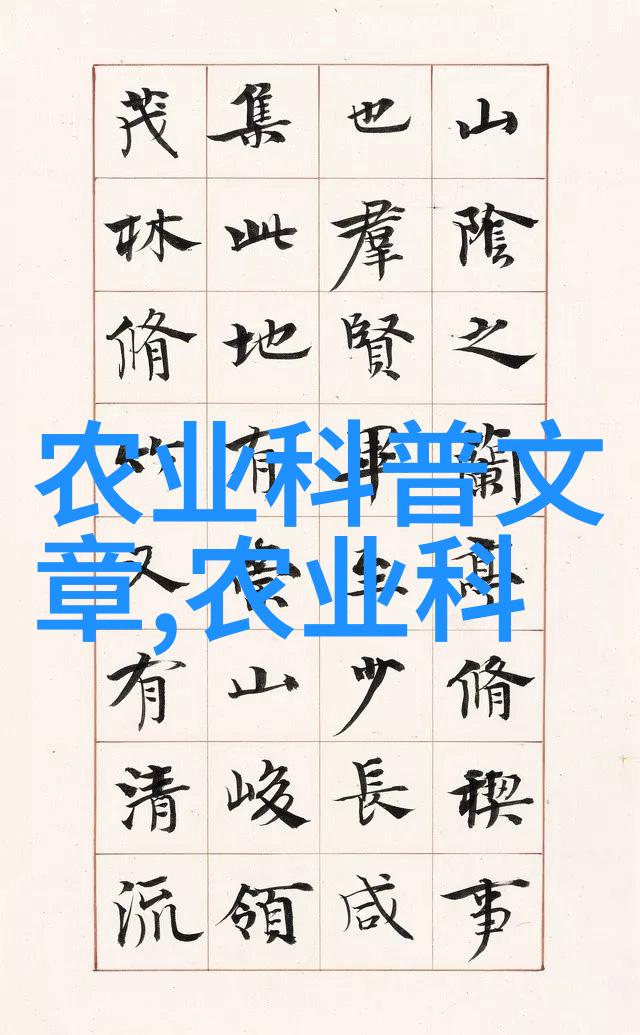 山陰之蘭亭脩稧事
也羣賢畢至少長咸
集此地有崇山峻領
茂林脩竹又有清流
农业科普文
章,农业科